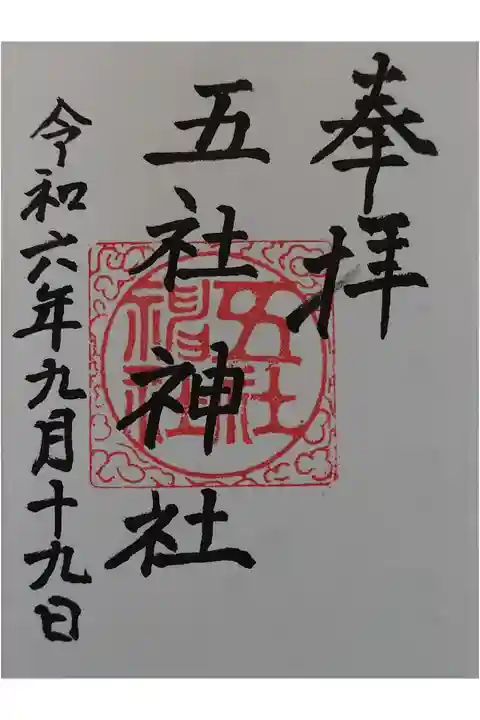 奉拝
五社神社
令和六年九月十九日
五社
神社